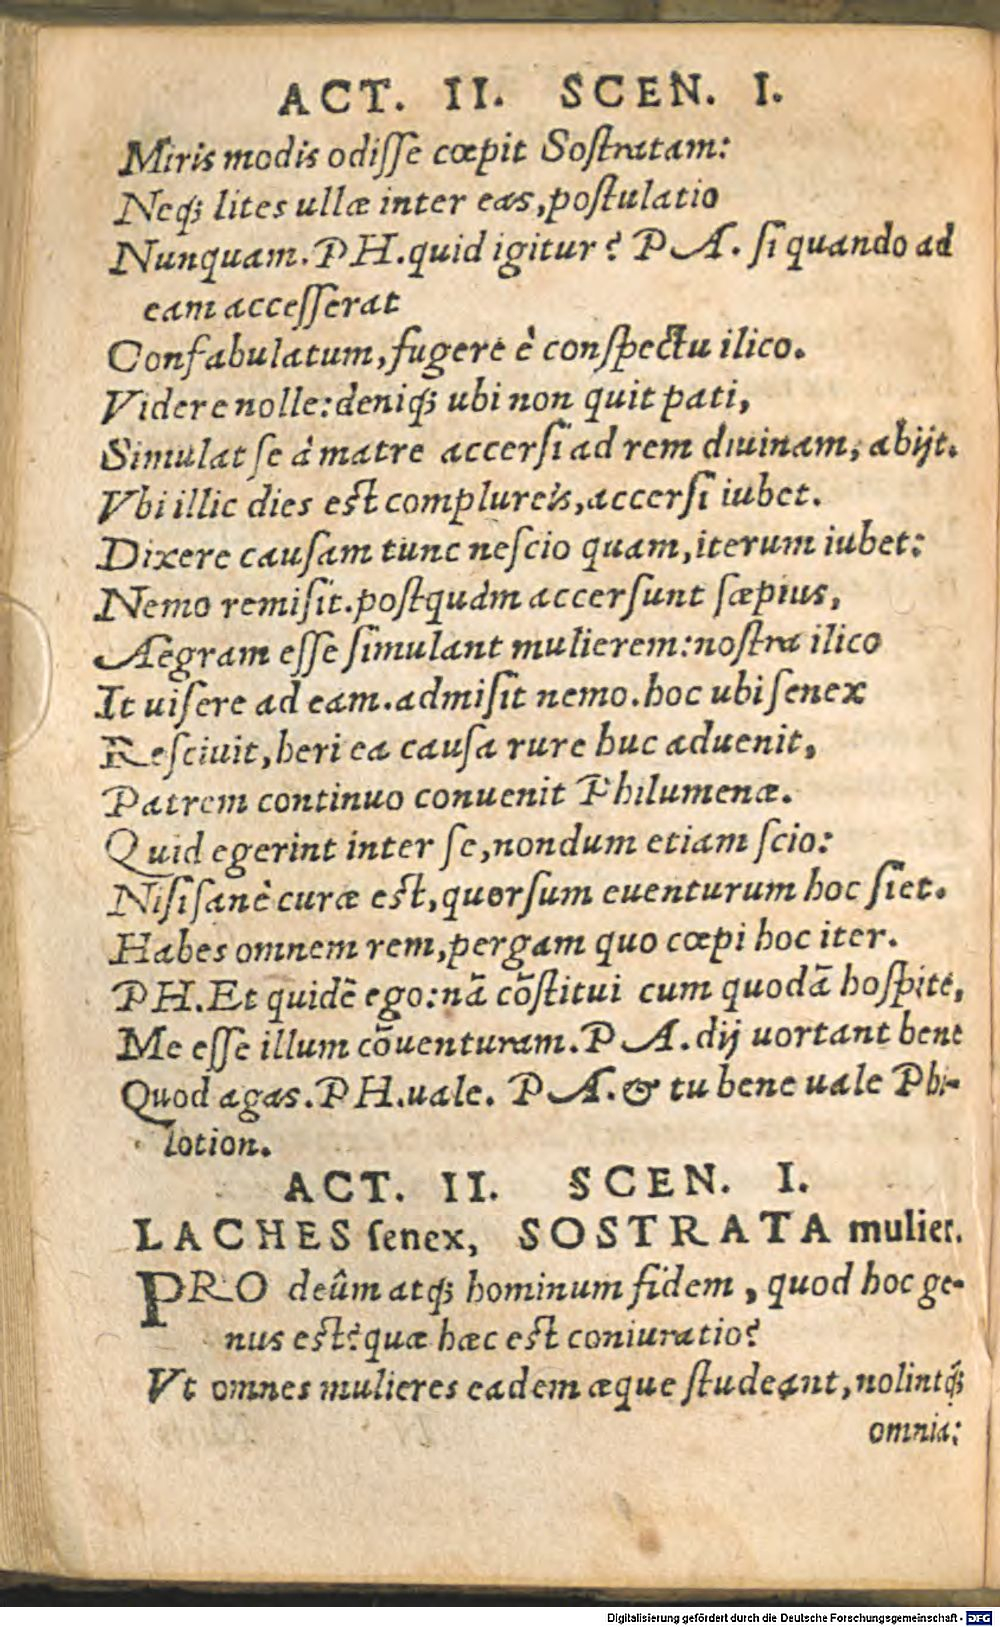 ACT. II. SCEN. I.
Miris modis odiſſe cœpit Soſtratam:
Neqꝫ lites ullæ inter eas, poſtulatio
Nunquam. PH. quid igitur? PA. ſi quando ad
eam acceſſerat
Confabulatum, fugere è conſpectu ilico.
Videre nolle: deniqꝫ ubi non quit pati,
Simulat ſe à matre accerſi ad rem diuinam, abijt.
Vbi illic dies eſt complureis, accerſi iubet.
Dixere cauſam tunc neſcio quam, iterum iubet:
Nemo remiſit. poſtquàm accerſunt ſæpius,
Aegram eſſe ſimulant mulierem: noſtra ilico
It uiſere ad eam. admiſit nemo. hoc ubi ſenex
Reſciuit, heri ea cauſa rure huc aduenit,
Patrem continuo conuenit Philumenæ.
Quid egerint inter ſe, nondum etiam ſcio:
Niſi ſanè curæ eſt, quorſum euenturum hoc ſiet.
Habes omnem rem, pergam quo cœpi hoc iter.
PH. Et quidẽ ego: nã cõſtitui cum quodã hoſpite,
Me eſſe illum cõuenturam. PA. dij uortant bene
Quod agas. PH. uale. PA. & tu bene uale Phi-
lotion.
ACT. II. SCEN. I.
LACHES ſenex, SOSTRATA mulier.
PRO deûm atqꝫ hominum fidem, quod hoc ge-
nus eſt? quæ hæc eſt coniuratio?
Vt omnes mulieres eadem æque ſtudeant, nolintqꝫ
omnia:
Digitalisierung gefördert durch die Deutsche Forschungsgemeinschaft - DFG